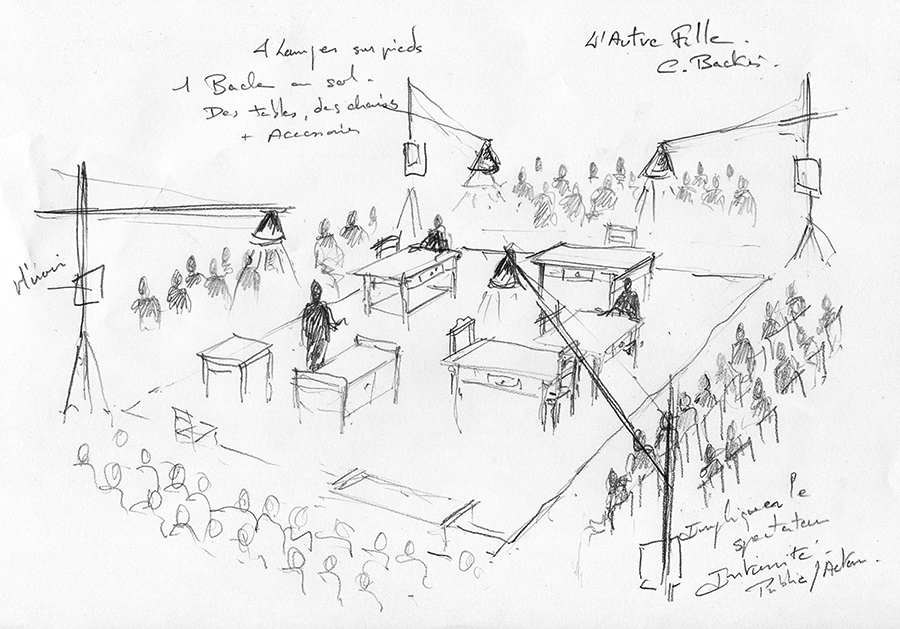 4 Lampes sur pieds
1 Bache au sol.
Des tables, des chaises
+ Accessoires
L'Autre Fille.
C. Backès.
Impliquer le
spectateur
Intimité
Public / Acteur.